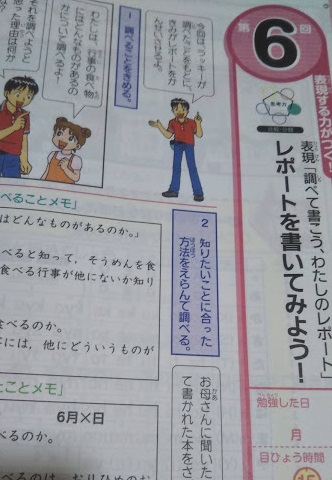 第6回
表現する力がつく！
思考力
比較・分類
表現「調べて書こう、わたしのレポート」
レポートを書いてみよう！
勉強した日
べんきょう
月
目ひょう時間
15
今回は、ラッキーが
調べたことをもとに、
1 調べることをきめる。
わたしは、行事の食べ物
にはどんなものがあるの
かについて調べるよ！
それを調べようと
思った理由は何か
2 知りたいことに合った
方法をえらんで調べる。
べることメモ」
はどんなものがあるのか。」
べると知って，そうめんを食
食べる行事が他にないか知り
食べるのか。
には，他にどういうものが
たことメモ」
6月×日
べるのか。
お母さんに聞いた
て書かれた本をさ